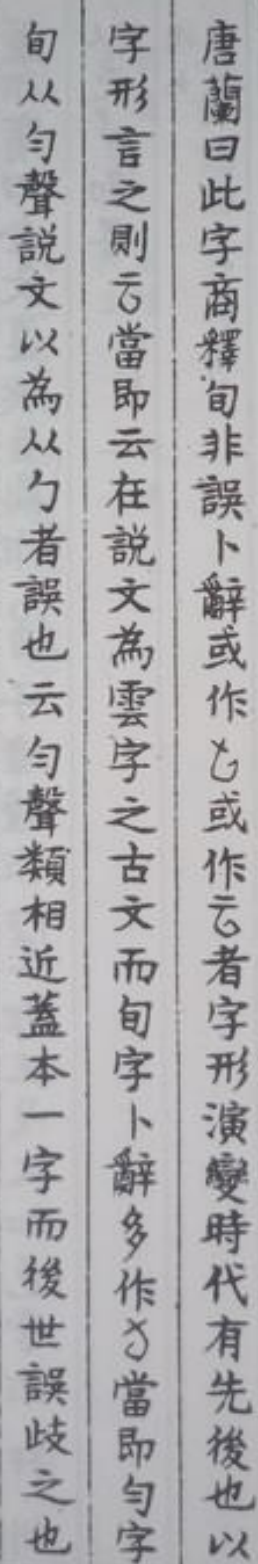 唐蘭曰此字商釋旬非誤卜辭或作或作者字形演變時代有先後也以
字形言之則當即云在說文為雲字之古文而旬字卜辭多作當即勻字
旬从勻聲說文以為从勹者誤也云勻聲類相近蓋本一字而後世誤歧之也